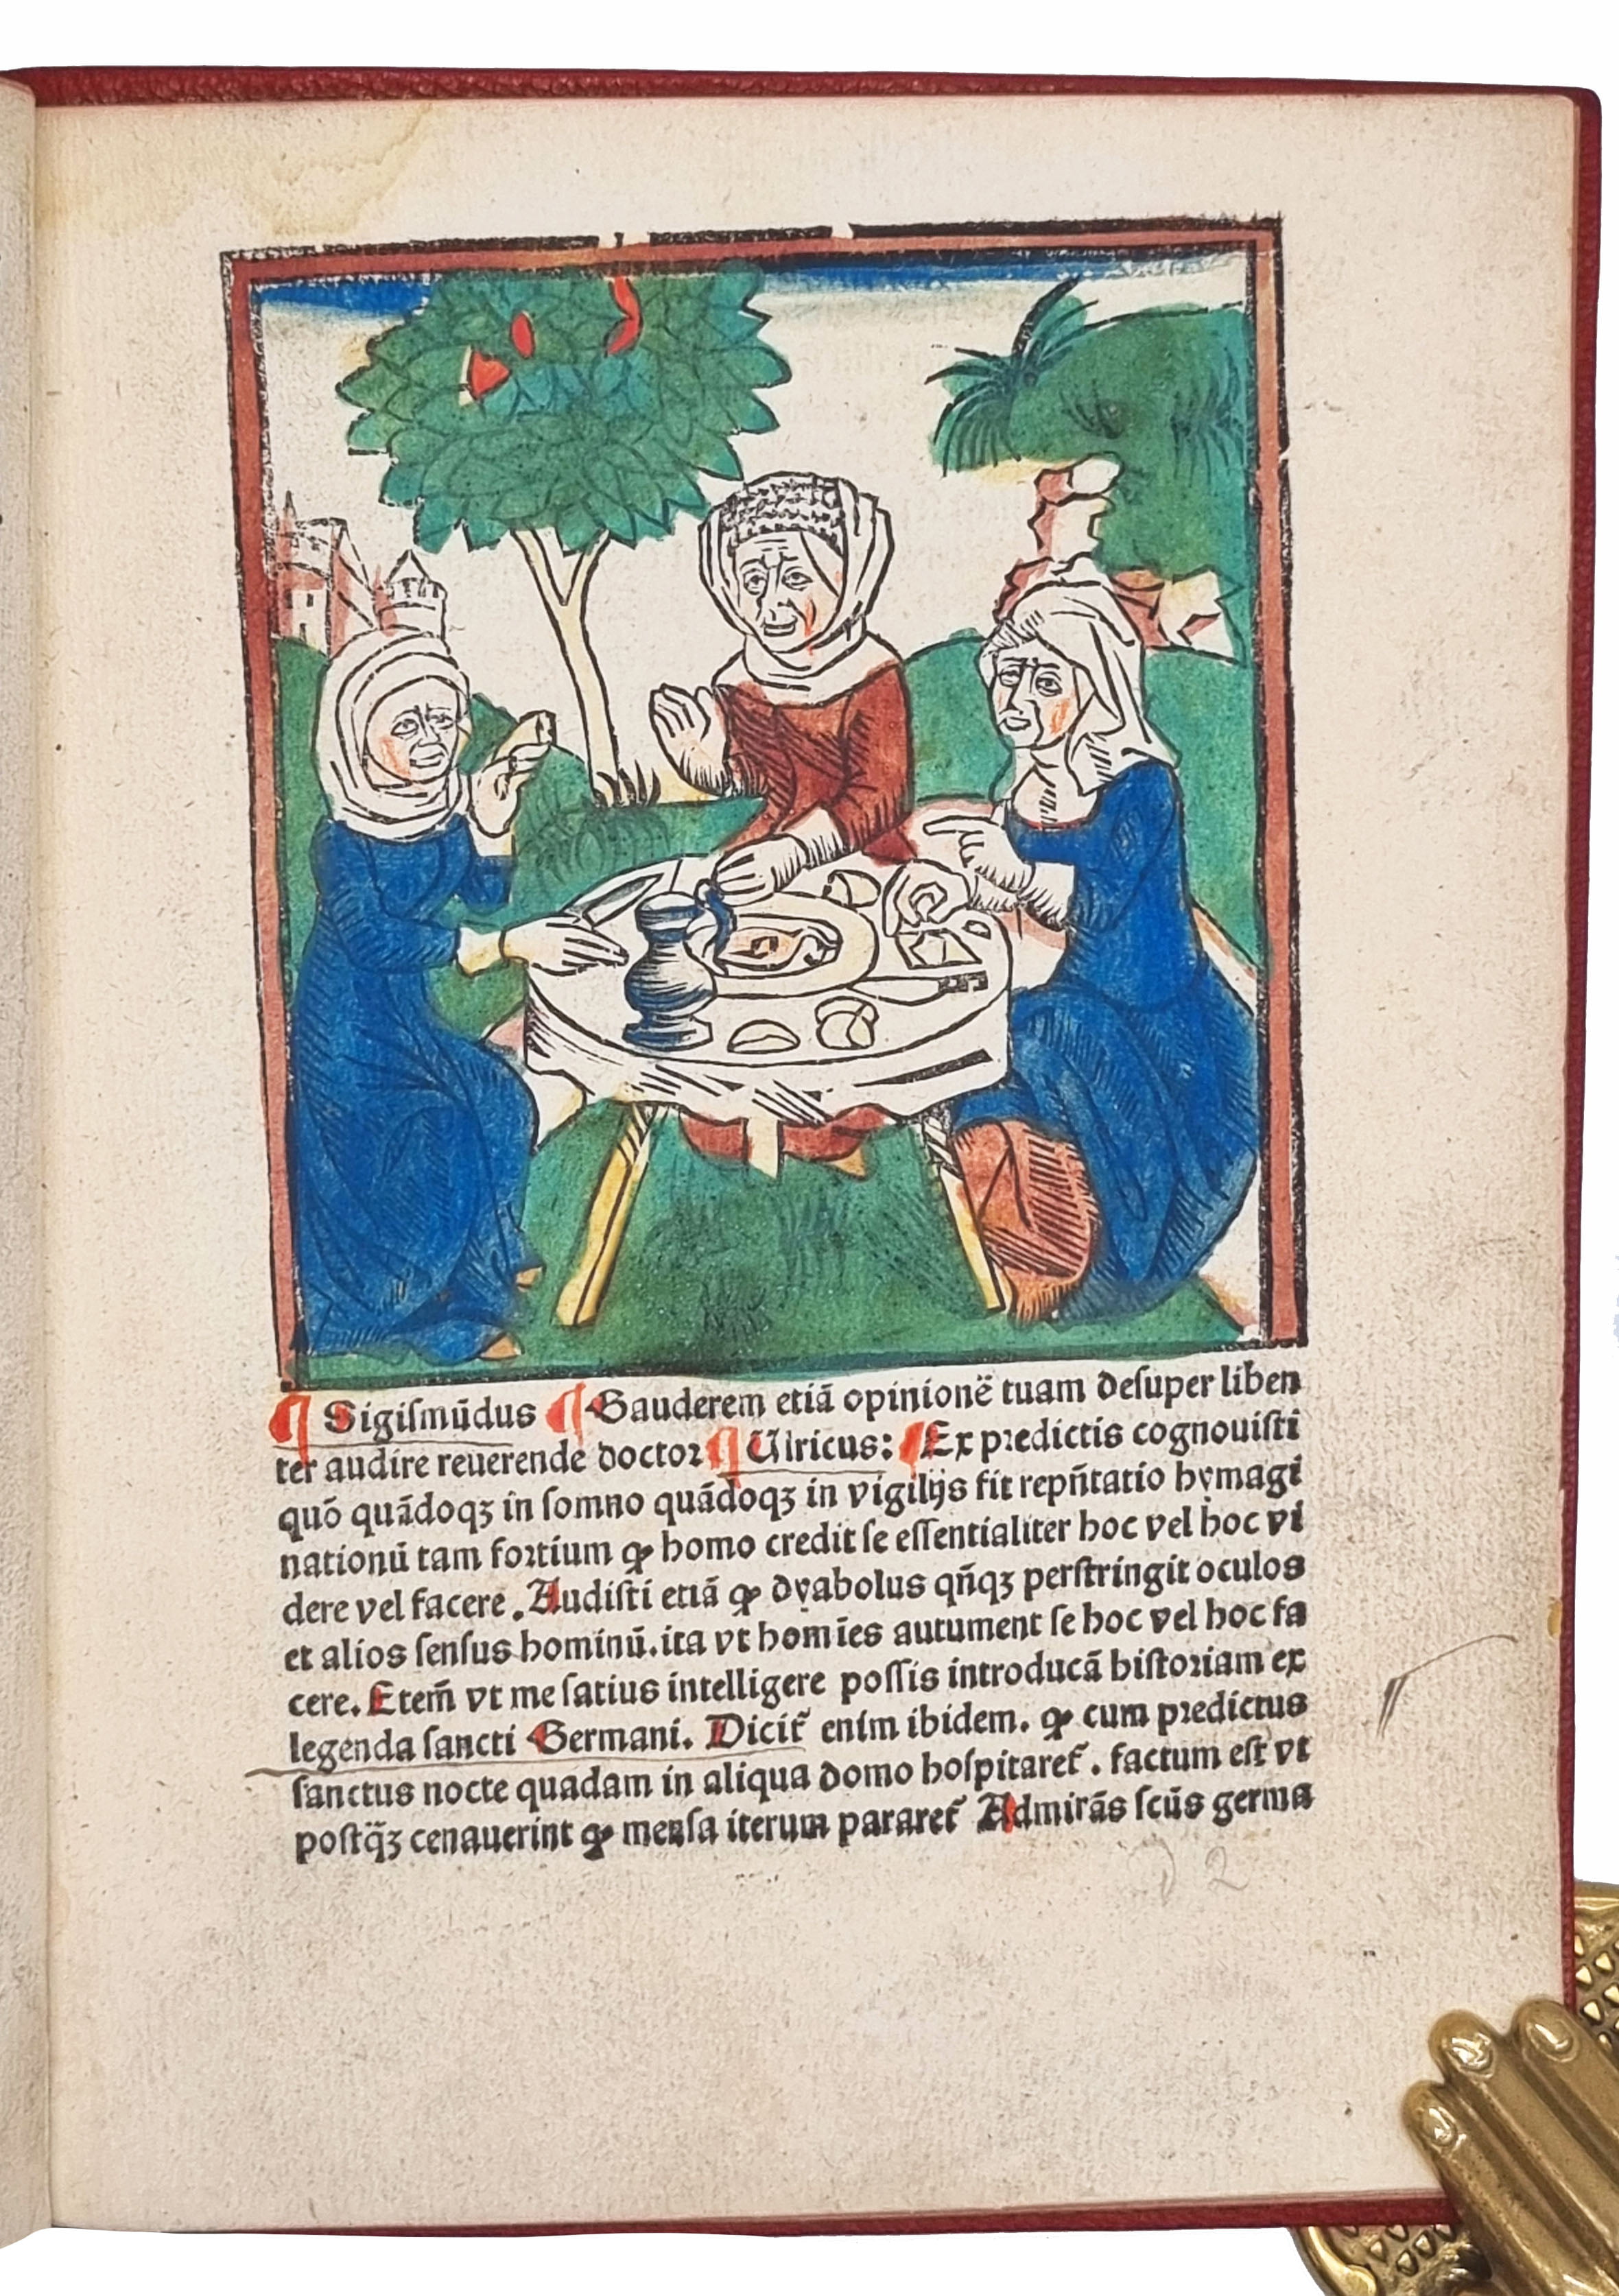 ¶ Sigiſmūdus ¶ Gauderem etiā opinionē tuam deſuper liben
ter audire reuerende doctor ¶ Ulricus: ¶ Ex predictis cognouiſti
quō quādoqꝫ in ſomno quādoqꝫ in vigilijs fit repn̄tatio hymagi
nationū tam fortium ꝙ homo credit ſe eſſentialiter hoc vel hoc vi
dere vel facere. Audiſti etiā ꝙ dyabolus qn̄qꝫ perſtringit oculos
et alios ſenſus hominū. ita vt homīes autument ſe hoc vel hoc fa
cere. Etem̄ vt me ſatius intelligere poſſis introducā hiſtoriam ex
legenda ſancti Germani. Dicit᷑ enim ibidem. ꝙ cum predictus
ſanctus nocte quadam in aliqua domo hoſpitaret᷑. factum eſt vt
poſtq̄ꝫ cenauerint ꝙ menſa iterum pararet᷑ Admirās ſcūs germa